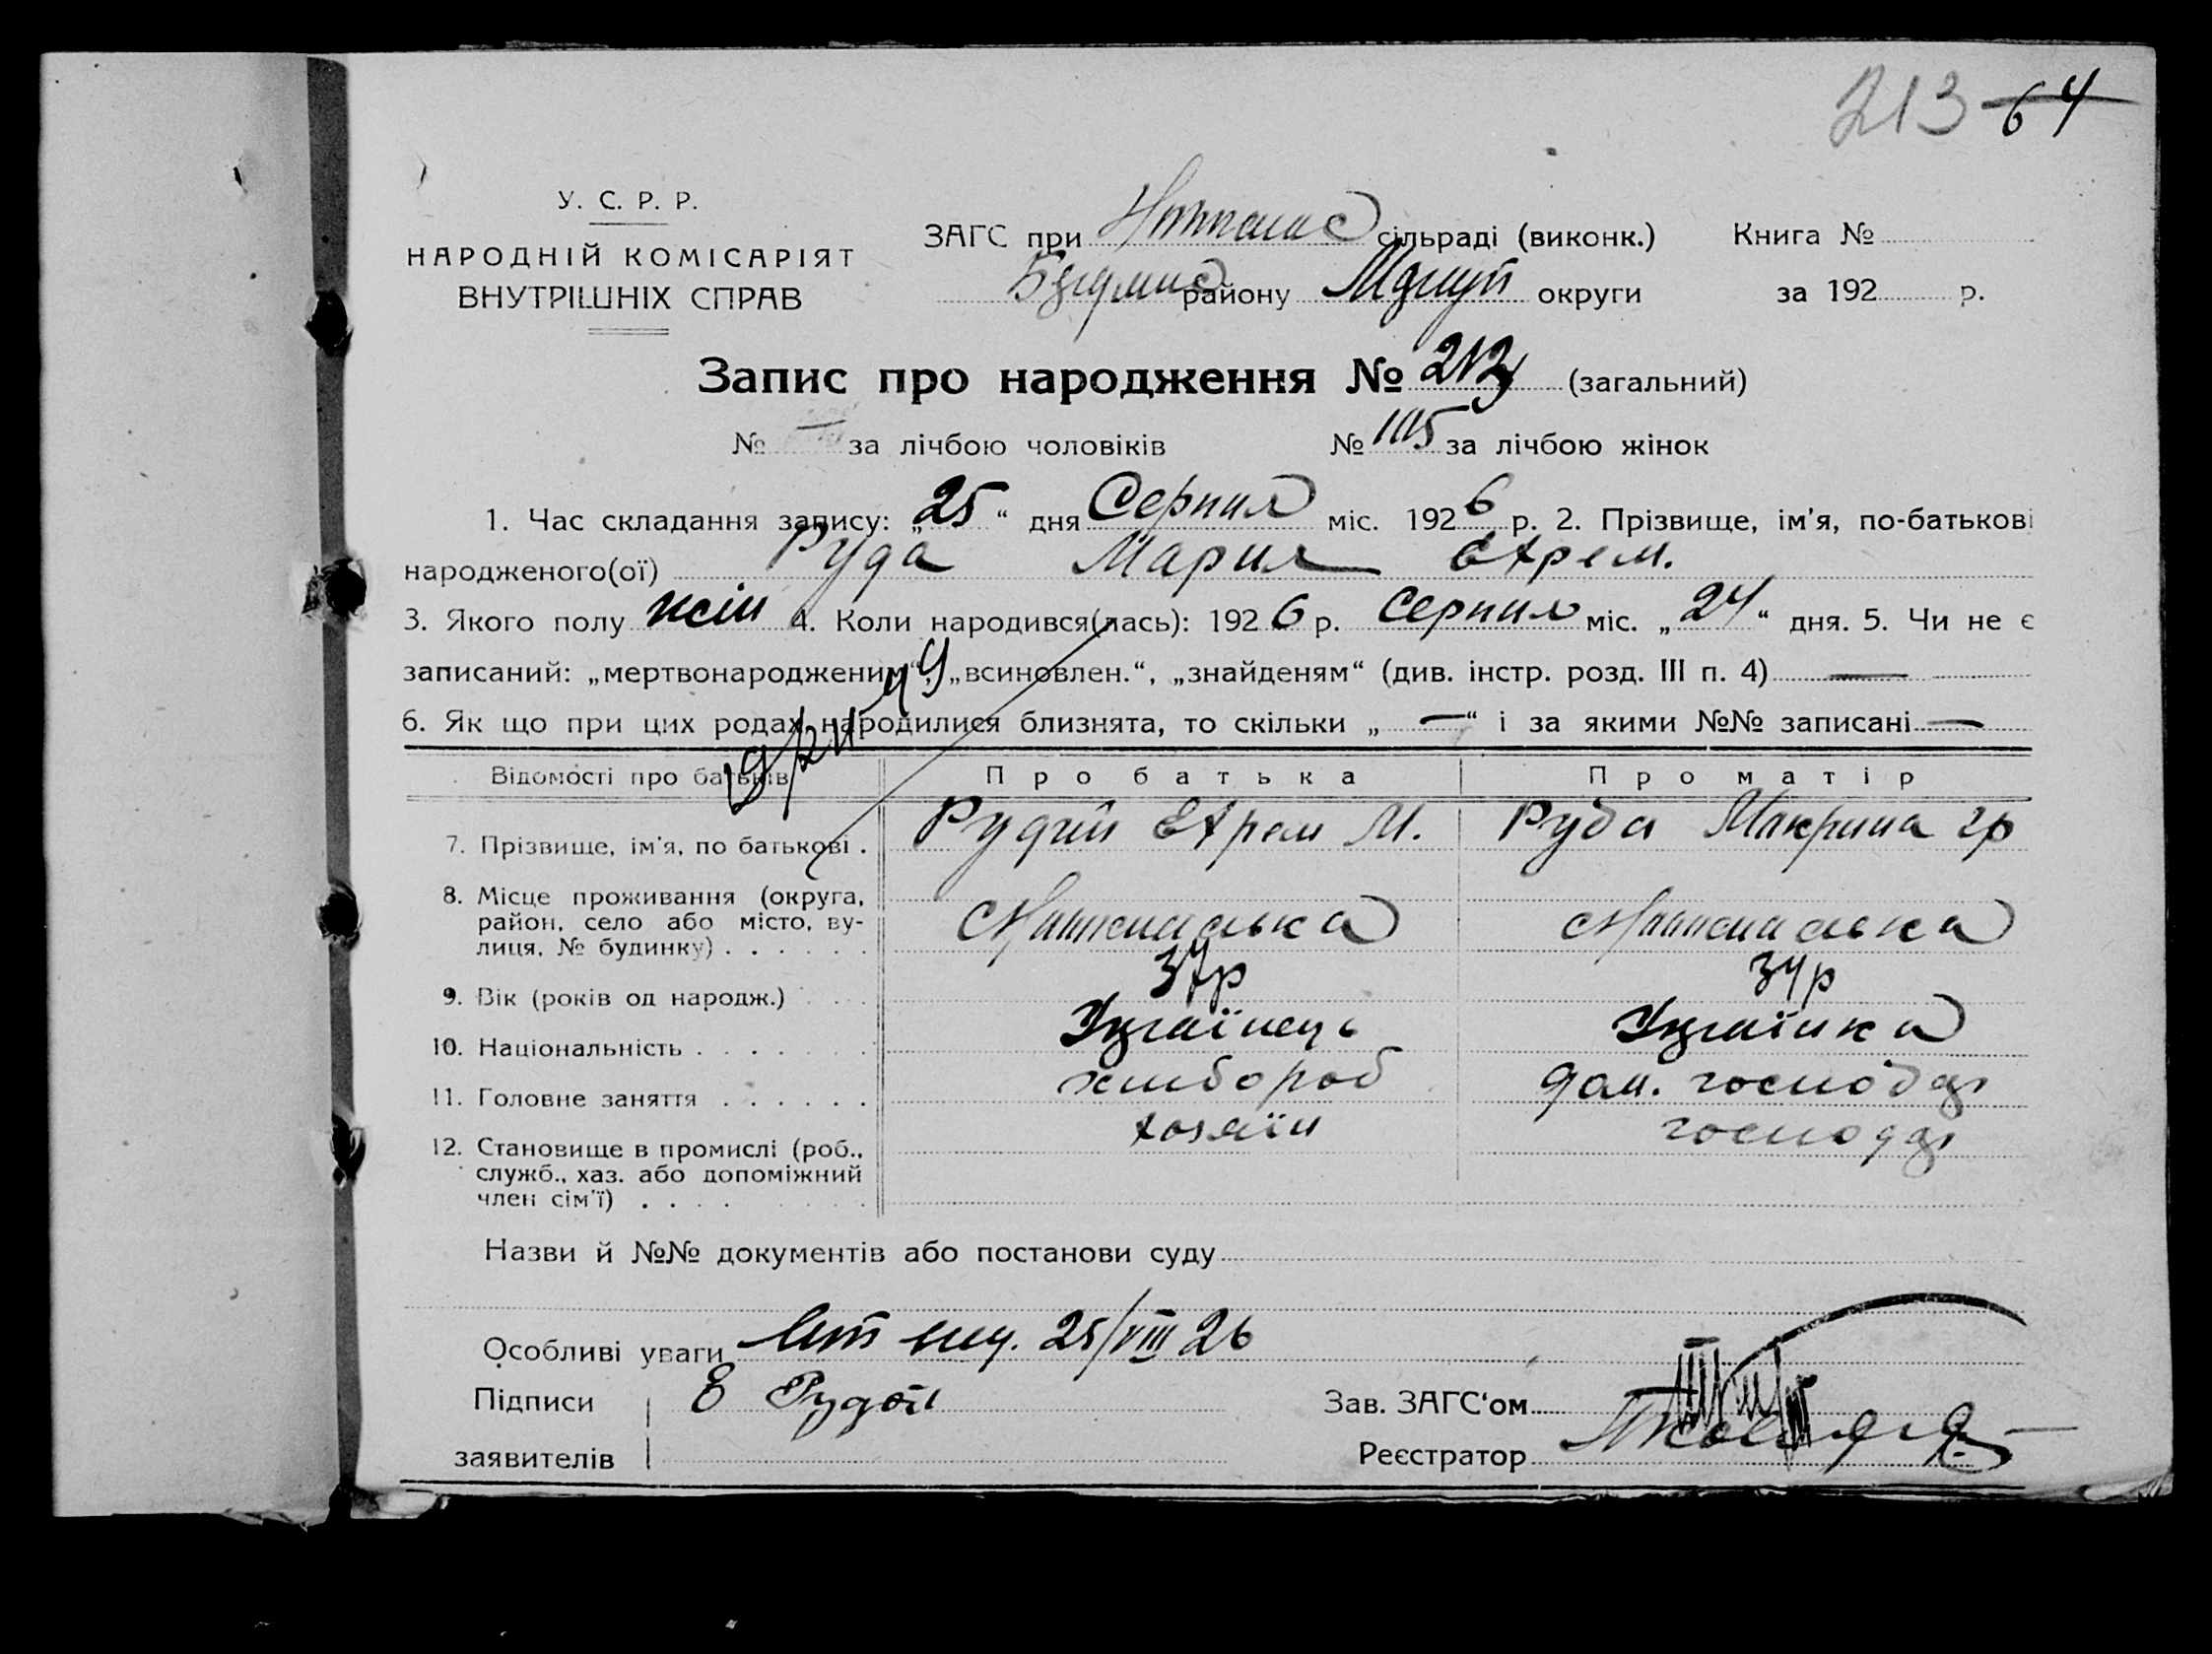 213 64
У. С. Р. Р.
НАРОДНІЙ КОМІСАРІЯТ
ВНУТРІШНІХ СПРАВ
ЗАГС при сільраді (виконк.) Книга №
району округи за 192 р.
Запис про народження № 213 (загальний)
№ — за лічбою чоловіків № 105 за лічбою жінок
1. Час складання запису: „25“ дня Серпня міс. 1926 р. 2. Прізвище, ім'я, по-батькові
народженого(ої) Руда Мария Єхрем.
3. Якого полу жін 4. Коли народився(лась): 1926 р. Серпня міс. „24“ дня. 5. Чи не є
записаний: „мертвонародженим“, „всиновлен.“, „знайденям“ (див. інстр. розд. III п. 4) —
6. Як що при цих родах народилися близнята, то скільки „—“ і за якими №№ записані —
Відомості про батьків Про батька Про матір
7. Прізвище, ім'я, по батькові . Рудий Єхрем М. Руда Макрина гр
8. Місце проживання (округа,
район, село або місто, ву-
лиця, № будинку) . . . . . .
9. Вік (років од народж.) 37р 34р
10. Національність . . . . . . . Українець Українка
11. Головне заняття . . . . . . хлібороб дом. господар
12. Становище в промислі (роб., хозяїн господар
служб., хаз. або допоміжний
член сім'ї) . . . .
Назви й №№ документів або постанови суду
Особливі уваги 25/VIII 26
Підписи Е Рудой Зав. ЗАГС'ом
заявителів Реєстратор